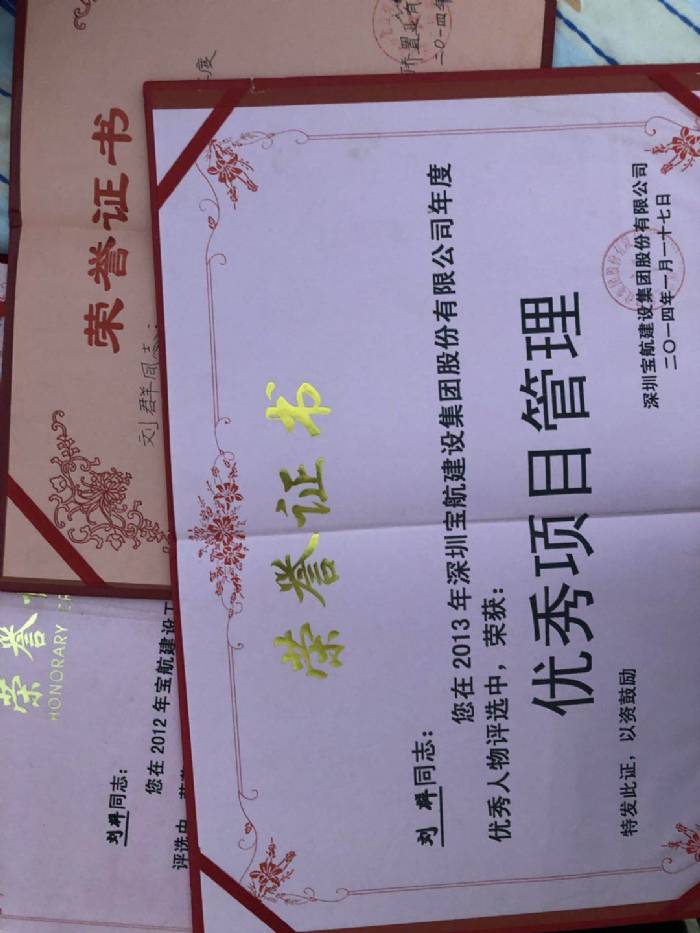 荣誉证书
刘群同志:
您在2013年深圳宝航建设集团股份有限公司年度
优秀人物评选中,荣获:
优秀项目管理
特发此证,以资鼓励
深圳宝航建设集团股份有限公司
二〇一四年一月一十七日
荣誉证书
刘群同志:
度
置业有
二〇一四年
荣誉
HONORARY
刘群同志:
您在2012年宝航建设
评选中